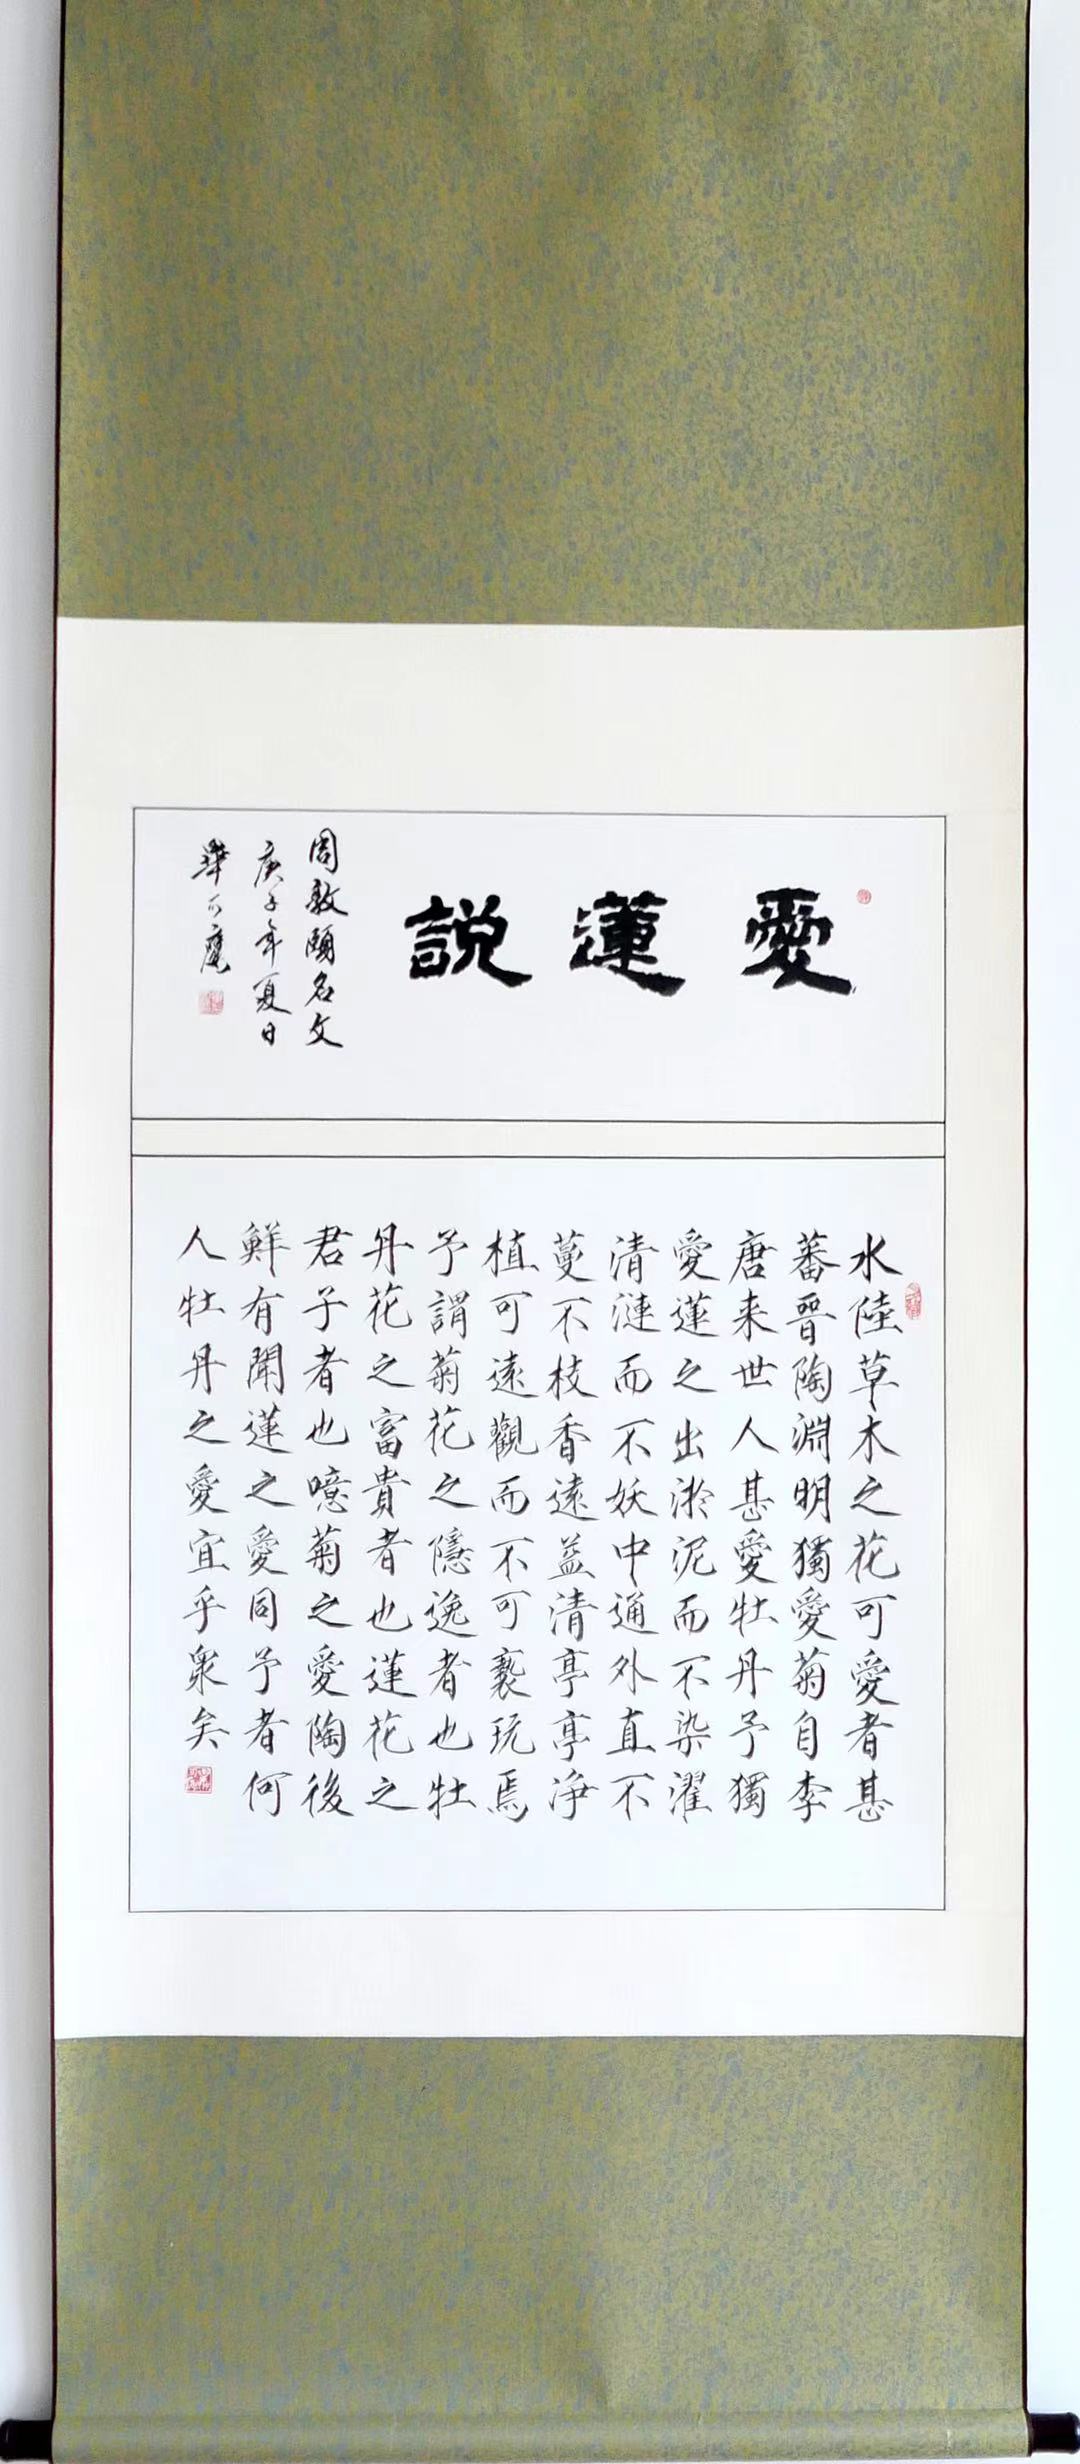 愛蓮説
周敦頤名文
庚子年夏日
水陸草木之花可愛者甚
蕃晉陶淵明獨愛菊自李
唐来世人甚愛牡丹予獨
愛蓮之出淤泥而不染濯
清漣而不妖中通外直不
蔓不枝香遠益清亭亭净
植可遠觀而不可褻玩焉
予謂菊花之隱逸者也牡
丹花之富貴者也蓮花之
君子者也噫菊之愛陶後
鮮有聞蓮之愛同予者何
人牡丹之愛宜乎衆矣